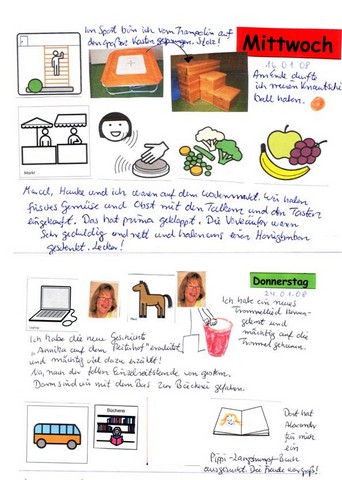 Im Sport bin ich vom Trampolin auf
den großen Kasten gesprungen. Stolz!
Mittwoch
Am Ende durfte
ich meinen Knautschi
Ball haben.
Markt
Marcel, Hauke und ich waren auf dem Wochenmarkt. Wir haben
frisches Gemüse und Obst mit den Talkern und den Tasten
eingekauft. Das hat prima geklappt. Die Verkäufer waren
sehr geduldig und nett und haben uns einen Honigbonbon
geschenkt. Lecker!
Donnerstag
24.01.08
Ich habe ein neues
Trommellied
und
mächtig auf die
Trommel gehauen.
Laptop
Pferd
Ich habe die neue Geschichte
"Annika auf dem Reiterhof" erarbeitet
und mächtig viel dazu erzählt!
Na, nach der tollen Einzelreitstunde von gestern.
Dann sind wir mit dem Bus zur Bücherei gefahren.
Bücherei
Dort hat
Alexander
für mich
ein
Pippi-Langstrumpf-Buch
ausgesucht. Die Freude war groß!